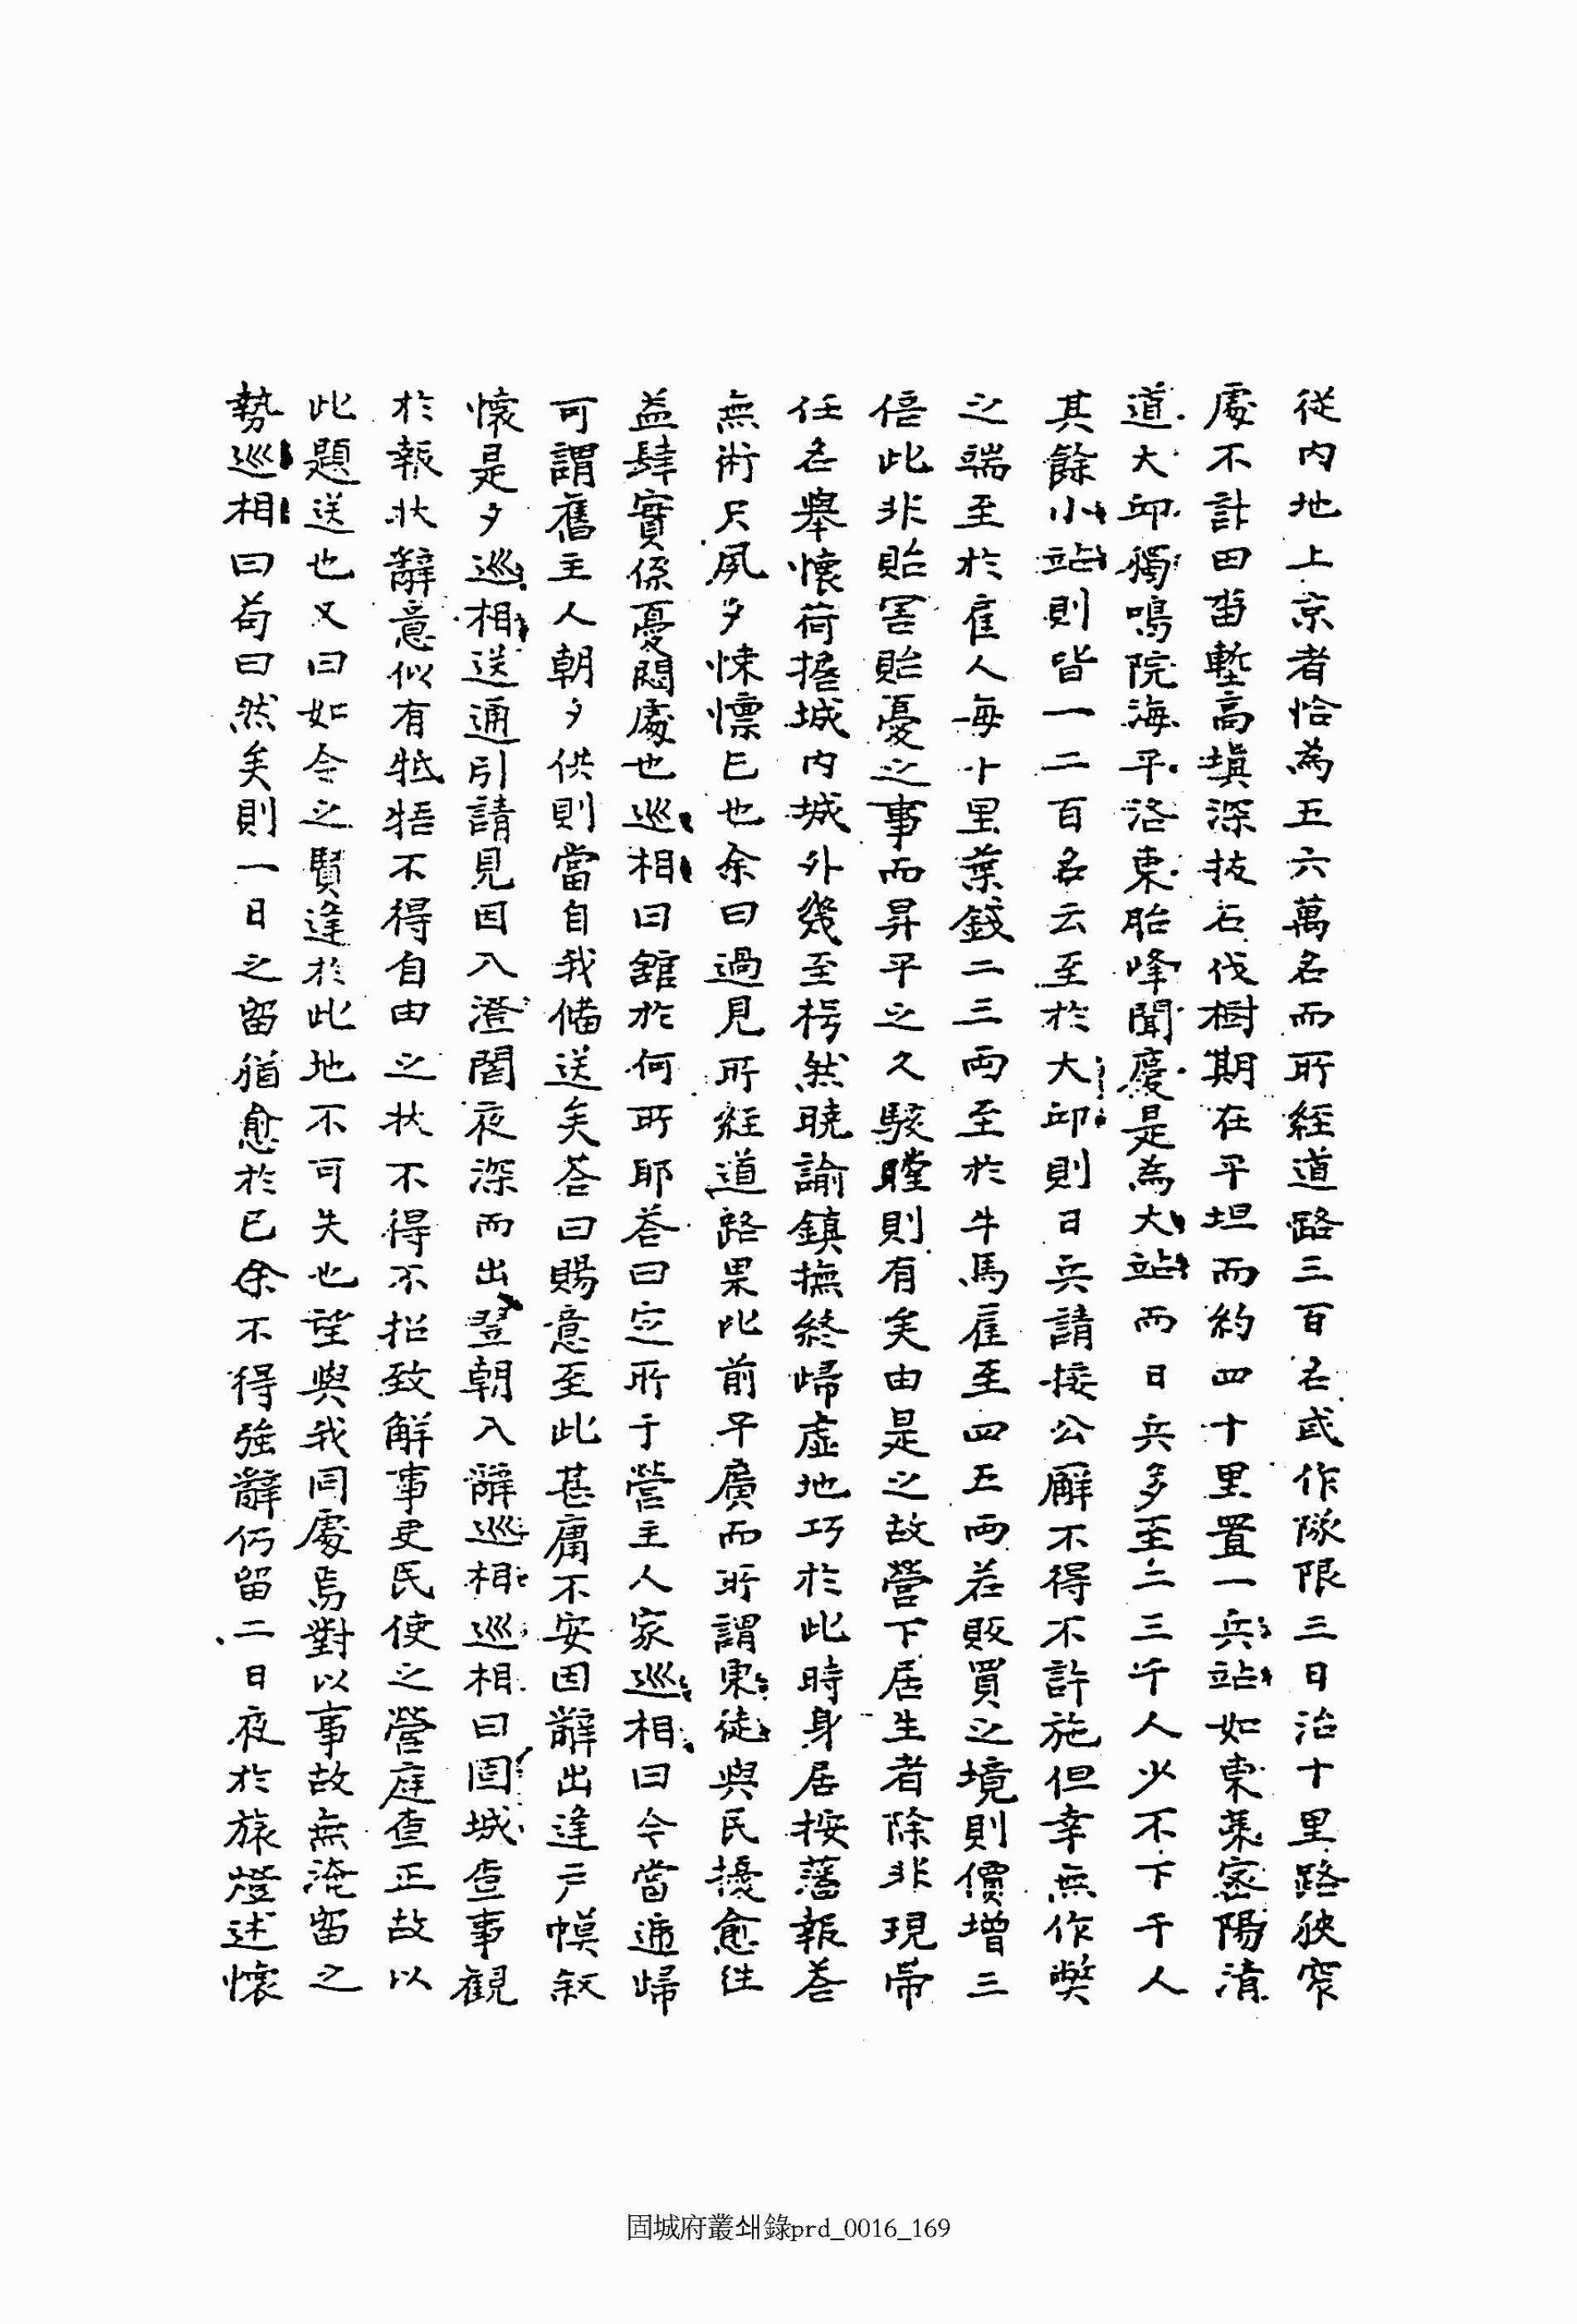 從內地上京者恰為五六萬名而所經道路三百名式作隊限三日治十里路狹窄
處不計田畓塹高塡深拔石伐樹期在平坦而約四十里置一兵站如東萊密陽淸
道大邱獨鳴院海平洛東胎峰聞慶是為大站而日兵多至二三千人少不下千人
其餘小站則皆一二百名云至於大邱則日兵請接公廨不得不許施但幸無作獘
之端至於雇人每十里葉錢二三兩至於牛馬雇至四五兩若販買之境則價增三
倍此非貽害貽憂之事而昇平之久駭瞠則有矣由是之故營下居生者除非現帶
任名擧懷荷擔城內城外幾至枵然曉諭鎭撫終歸虛地巧於此時身居按藩報答
無術只夙夕悚懍已也余曰過見所經道路果比前平廣而所謂東徒與民擾愈往
益肆實係憂悶處也巡相曰舘於何所耶答曰定所于營主人家巡相曰今當遞歸
可謂舊主人朝夕供則當自我備送矣答曰賜意至此甚庸不安因辭出逢戶幙叙
懷是夕巡相送通引請見因入澄閣夜深而出翌朝入辭巡相巡相曰固城查事觀
於報狀辭意似有牴牾不得自由之狀不得不招致解事吏民使之營庭查正故以
此題送也又曰如令之賢逢於此地不可失也望與我同處焉對以事故無淹留之
勢巡相曰苟曰然矣則一日之留猶愈於已余不得强辭仍留二日夜於旅燈述懷
固城府叢쇄錄prd_0016_169